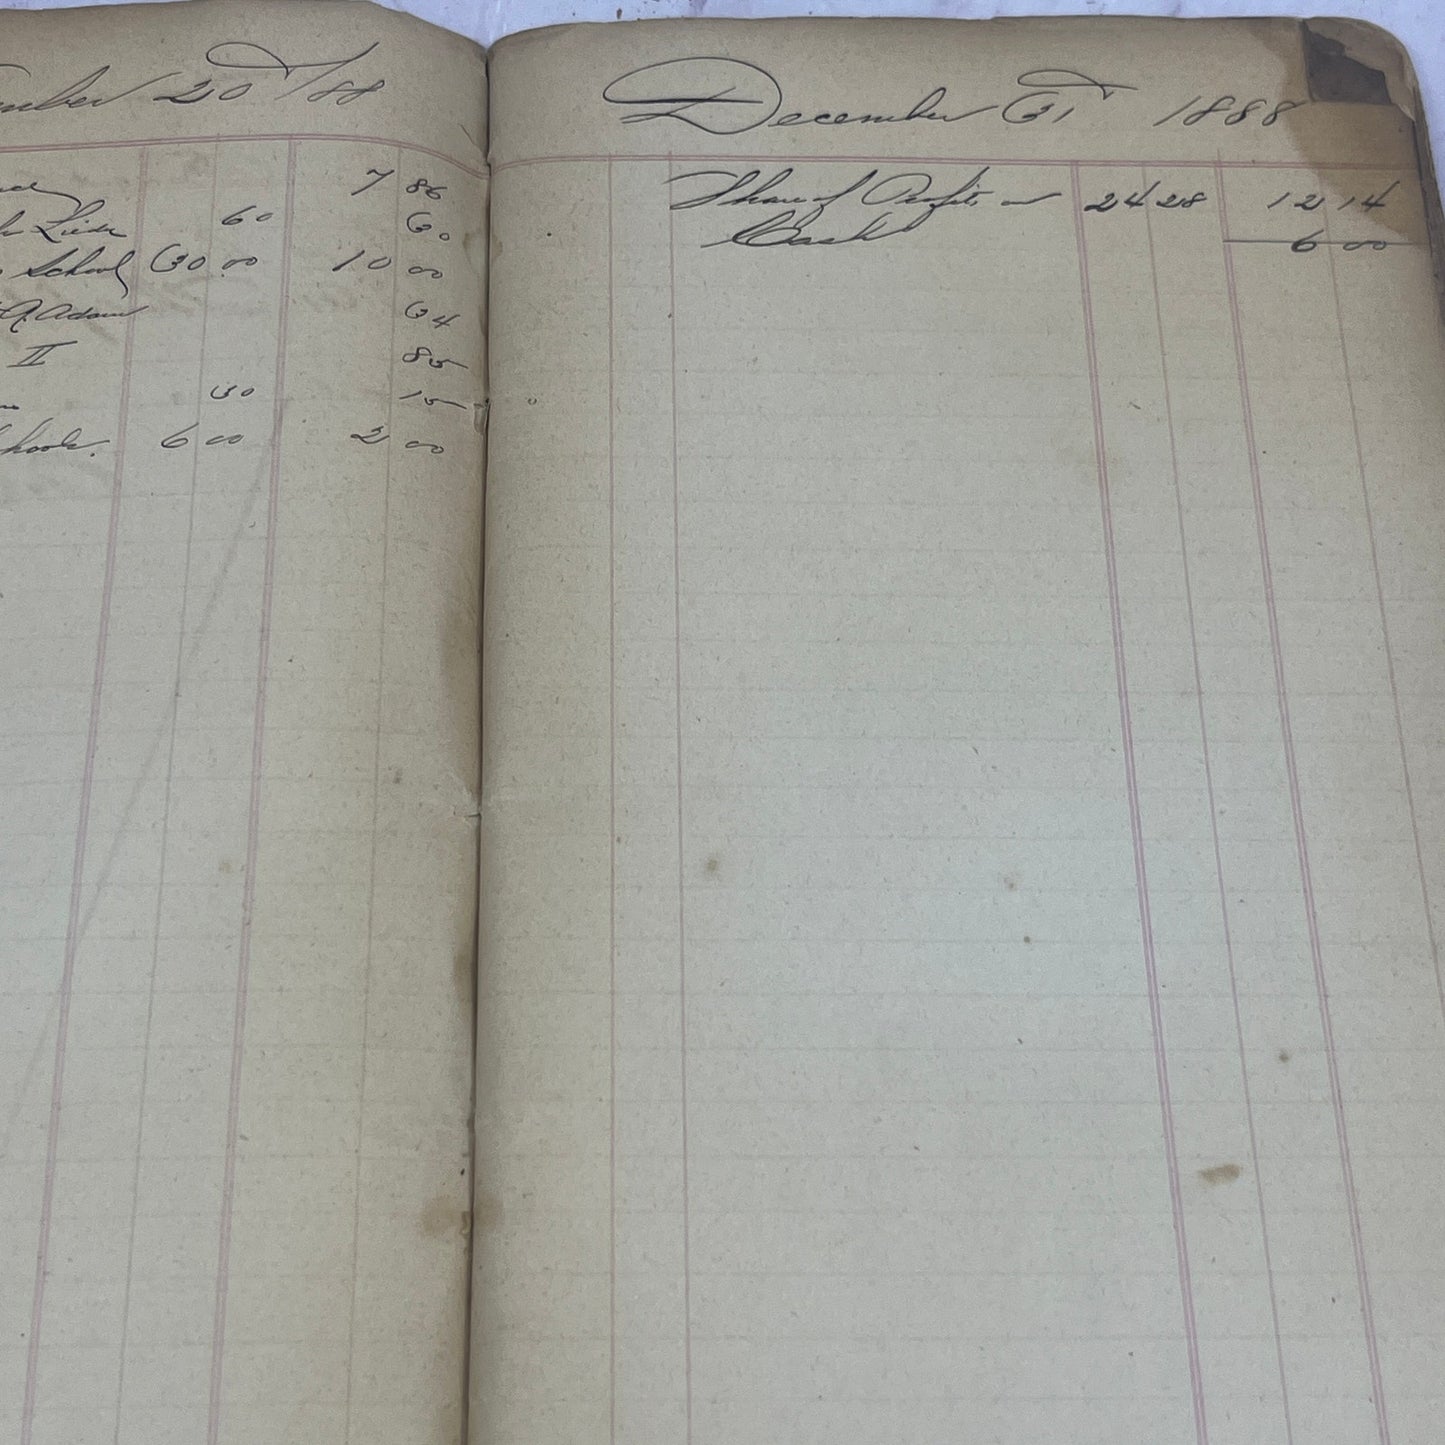 mber 20 /88
7 86
60 60
School 30 00 10 00
A. Adam 34
II 85
30 15
6 00 2 00
December 31 1888
Share of Profits on 24 28 12 14
Cash 6 00